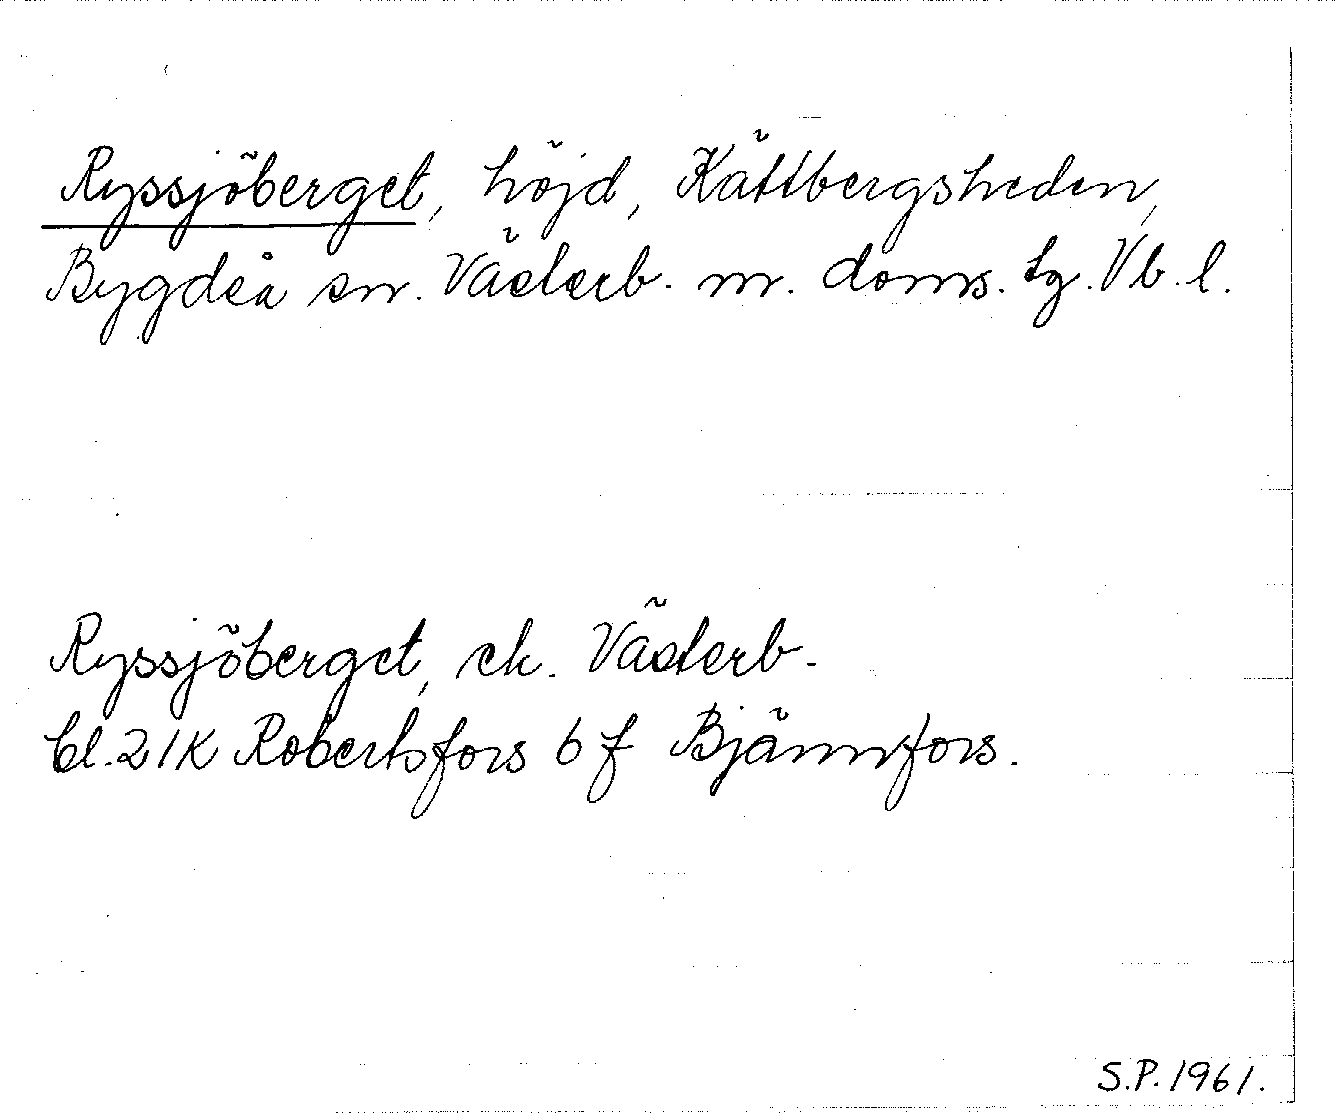 Ryssjöberget, höjd, Kättbergsheden,
Bygdeå sn. Västerb. m. doms. tg. Vb. l.
Ryssjöberget, ek. Västerb.
bl. 21K Robertsfors 6 f Bjännfors.
S.P. 1961.